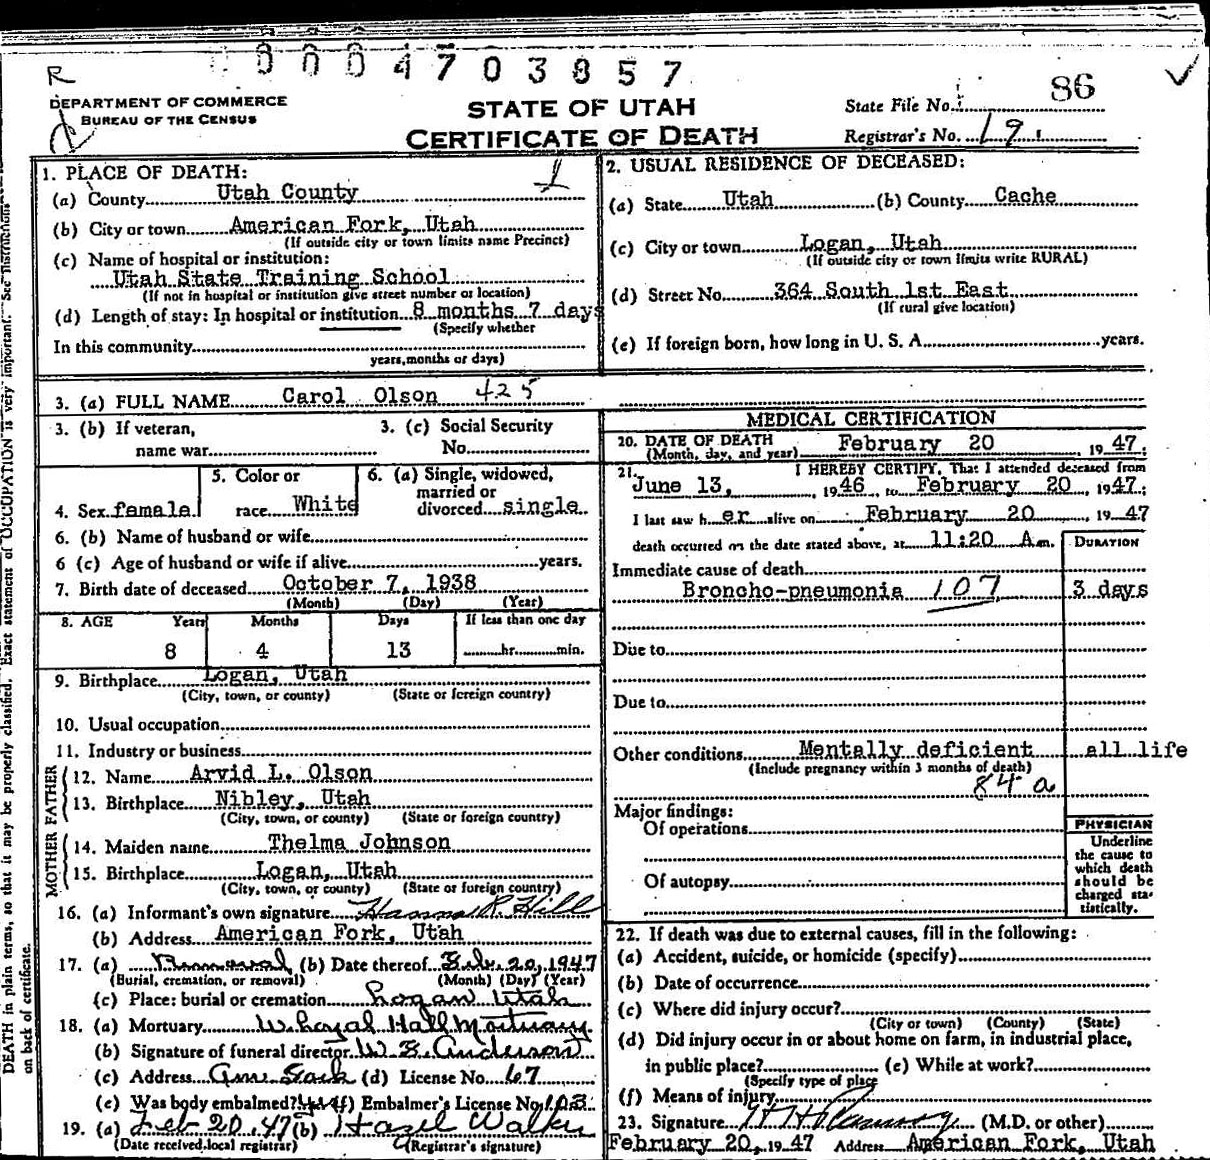 0004703857
R
86
DEPARTMENT OF COMMERCE
BUREAU OF THE CENSUS
STATE OF UTAH
CERTIFICATE OF DEATH
State File No.
Registrar's No. 19
1. PLACE OF DEATH:
(a) County Utah County
(b) City or town American Fork, Utah
(If outside city or town limits name Precinct)
(c) Name of hospital or institution:
Utah State Training School
(If not in hospital or institution give street number or location)
(d) Length of stay: In hospital or institution 8 months 7 days
(Specify whether
In this community
years, months or days)
2. USUAL RESIDENCE OF DECEASED:
(a) State Utah (b) County Cache
(c) City or town Logan, Utah
(If outside city or town limits write RURAL)
(d) Street No. 364 South 1st East
(If rural give location)
(e) If foreign born, how long in U. S. A. years.
3. (a) FULL NAME Carol Olson 425
3. (b) If veteran, name war
3. (c) Social Security No.
4. Sex female
5. Color or race White
6. (a) Single, widowed, married or divorced single
6. (b) Name of husband or wife
6 (c) Age of husband or wife if alive years.
7. Birth date of deceased October 7, 1938
(Month) (Day) (Year)
8. AGE Years Months Days If less than one day
8 4 13 hr. min.
9. Birthplace Logan, Utah
(City, town, or county) (State or foreign country)
10. Usual occupation
11. Industry or business
FATHER
12. Name Arvid L. Olson
13. Birthplace Nibley, Utah
(City, town, or county) (State or foreign country)
MOTHER
14. Maiden name Thelma Johnson
15. Birthplace Logan, Utah
(City, town, or county) (State or foreign country)
16. (a) Informant's own signature Hanna R. Hill
(b) Address American Fork, Utah
17. (a) Removal (b) Date thereof Feb. 20, 1947
(Burial, cremation, or removal) (Month) (Day) (Year)
(c) Place: burial or cremation Logan Utah
18. (a) Mortuary W. Loyal Hall Mortuary
(b) Signature of funeral director W. E. Anderson
(c) Address Am. Fork (d) License No. 67
(e) Was body embalmed? (f) Embalmer's License No. 103
19. (a) Feb 20, 47 (b) Hazel Walker
(Date received local registrar) (Registrar's signature)
MEDICAL CERTIFICATION
20. DATE OF DEATH February 20 1947.
(Month, day, and year)
21. I HEREBY CERTIFY, That I attended deceased from
June 13, 1946, to February 20, 1947;
I last saw her alive on February 20, 1947
death occurred on the date stated above, at 11:20 A.m.
DURATION
Immediate cause of death
Broncho-pneumonia 107 3 days
Due to
Due to
Other conditions Mentally deficient all life
(Include pregnancy within 3 months of death)
84a
Major findings:
Of operations
Of autopsy
PHYSICIAN
Underline
the cause to
which death
should be
charged sta-
tistically.
22. If death was due to external causes, fill in the following:
(a) Accident, suicide, or homicide (specify)
(b) Date of occurrence
(c) Where did injury occur?
(City or town) (County) (State)
(d) Did injury occur in or about home on farm, in industrial place,
in public place? (e) While at work?
(Specify type of place
(f) Means of injury
23. Signature (M.D. or other)
February 20, 1947 Address American Fork, Utah
DEATH in plain terms, so that it may be properly classified. Exact statement of OCCUPATION is very important. See instructions
on back of certificate.